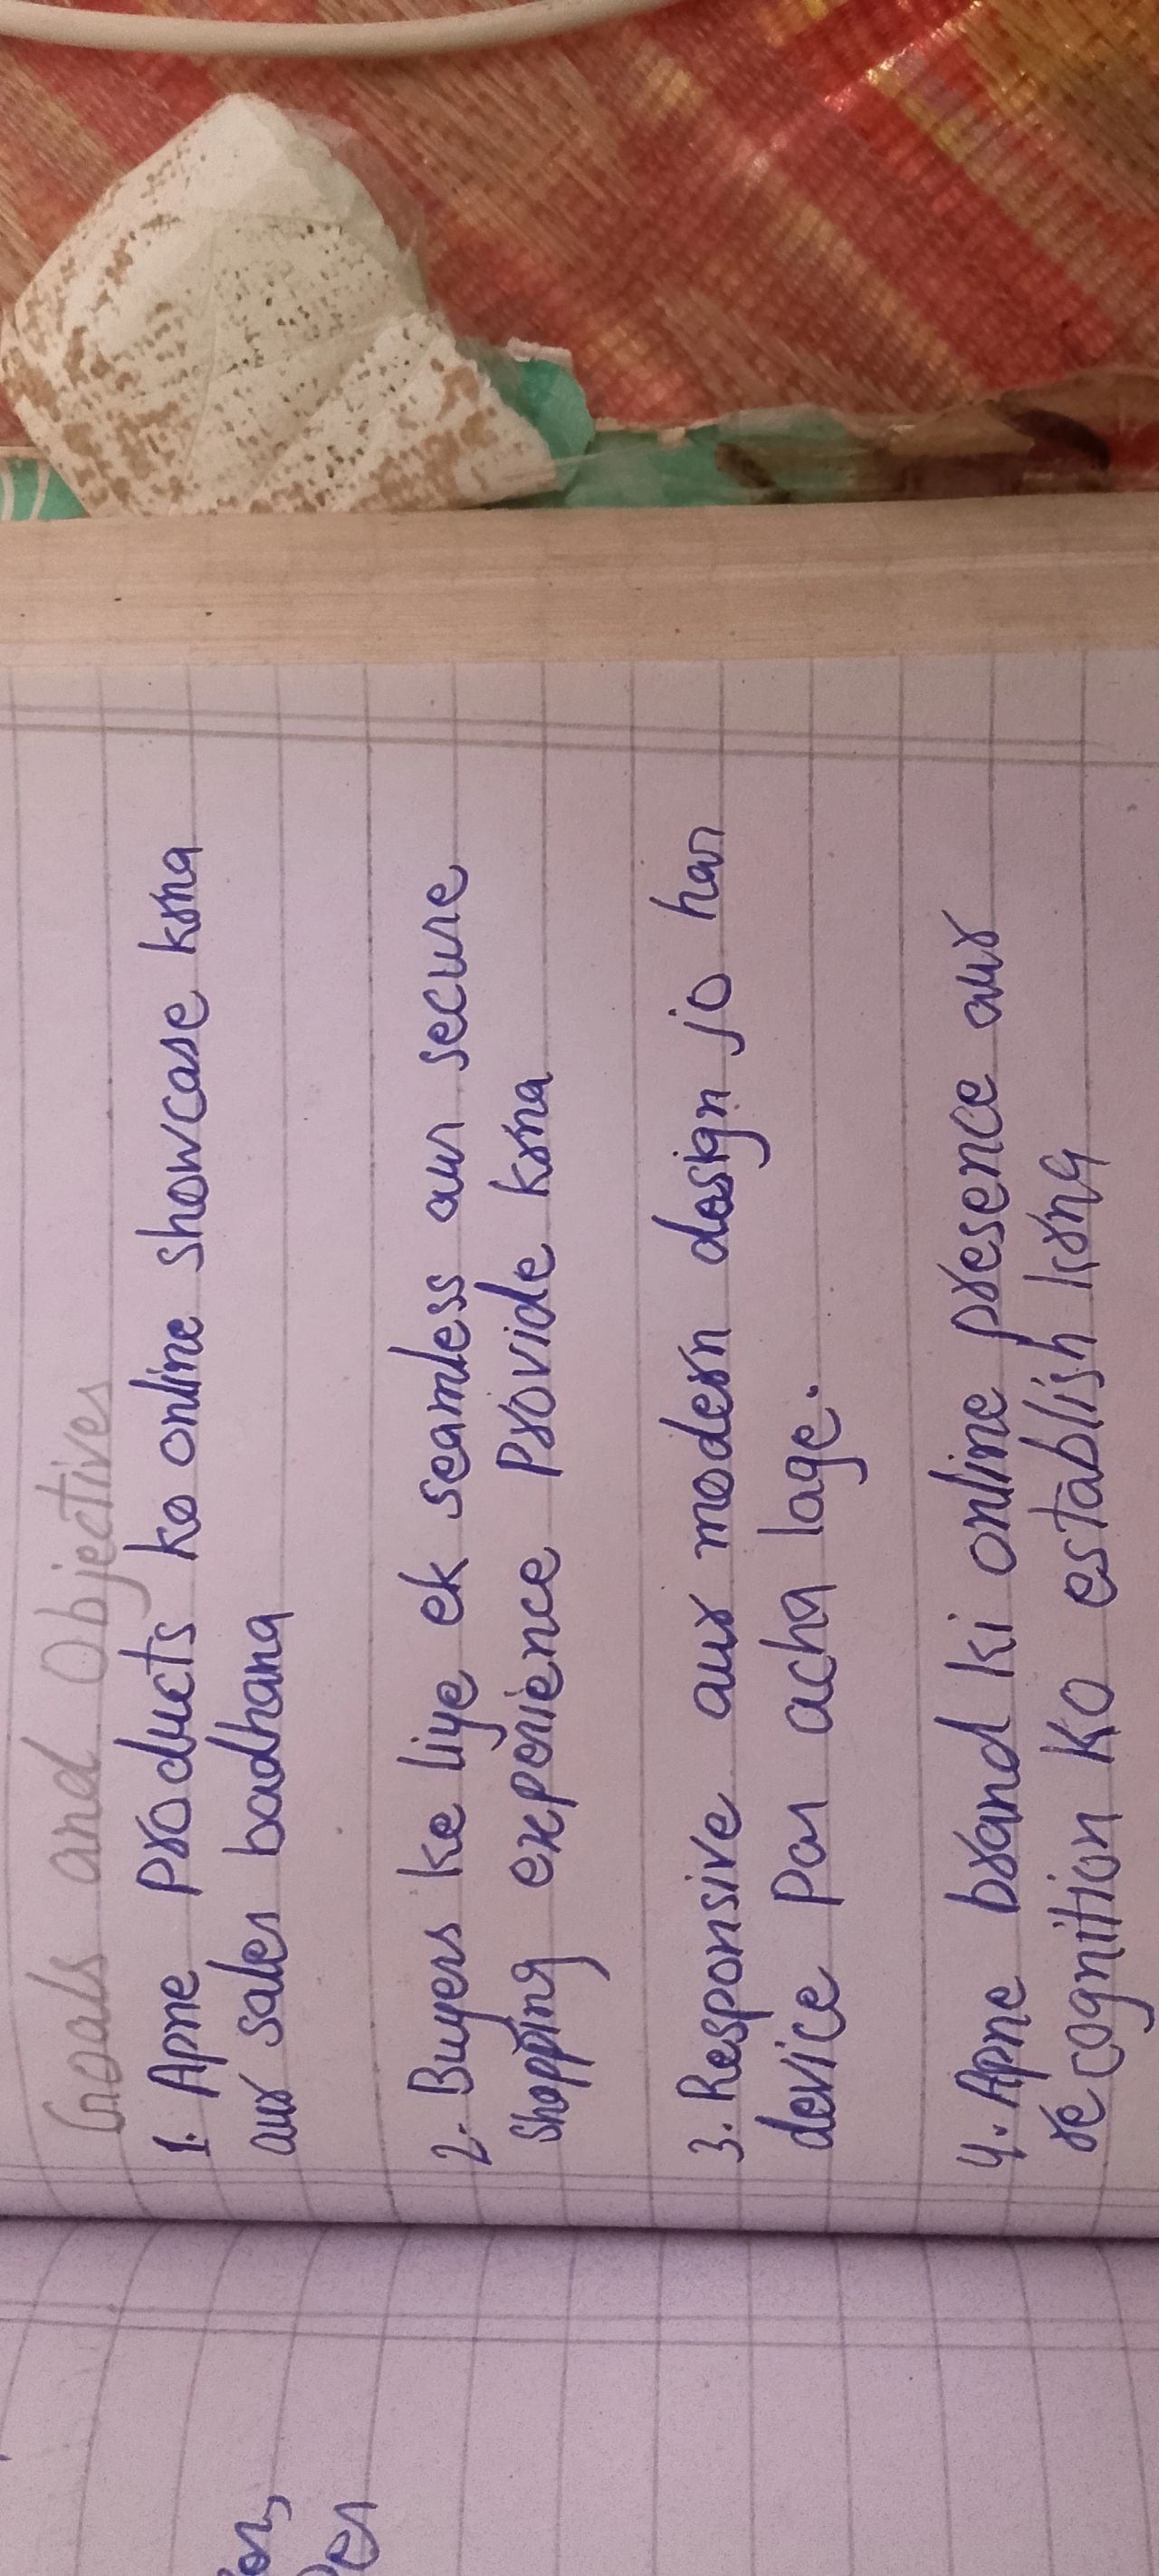 Goals and Objectives
1. Apne Products ko online showcase krna
aur sales badhana
2. Buyers ke liye ek seamless aur secure
shopping experience Provide krna
3. Responsive aur modern design jo har
device Par acha lage.
4. Apne brand ki online presence aur
recognition ko establish krna